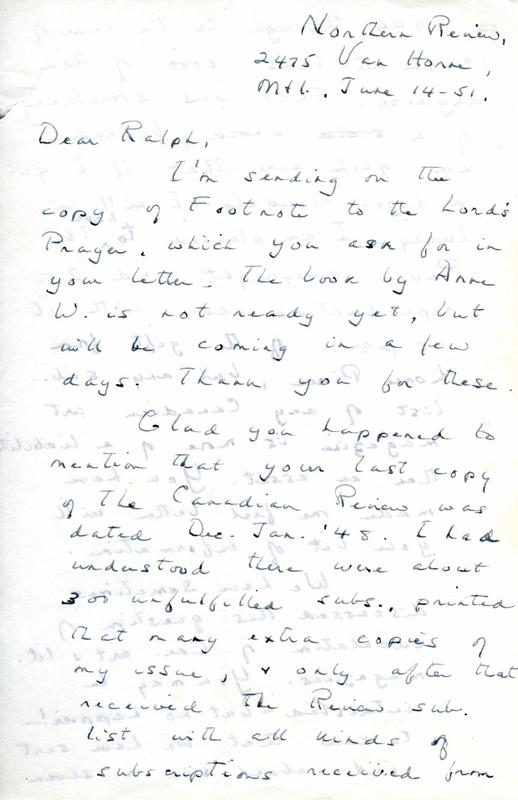 Northern Review,
2475 Van Horne,
Mtl. June 14-51.
Dear Ralph,
I'm sending on the
copy of Footnote to the Lord's
Prayer, which you ask for in
your letter. The book by Anne
W. is not ready yet, but
will be coming in a few
days. Thank you for these.
Glad you happened to
mention that your last copy
of The Canadian Review was
dated Dec. Jan. '48. I had
understood there were about
300 unfulfilled subs., printed
that many extra copies of
my issue, & only after that
received the Review sub.
list with all kinds of
subscriptions received from